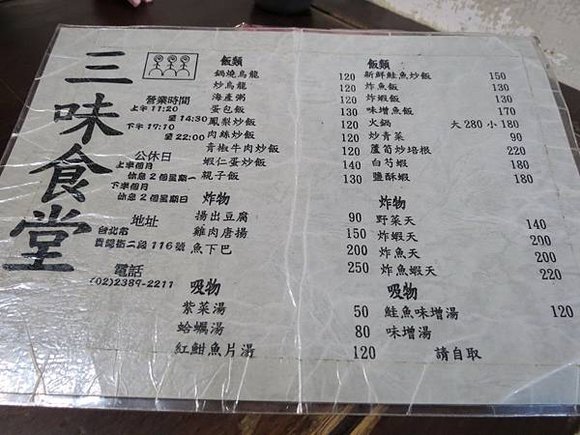 三味食堂
營業時間
上午11:20
至14:30
下午17:10
至22:00
公休日
上半個月
休息2個星期一
下半個月
休息2個星期日
地址
台北市
貴陽街二段116號
電話
(02)2389-2211
飯類
鍋燒烏龍 120
炒烏龍 120
海產粥 130
蛋包飯 120
鳳梨炒飯 120
肉絲炒飯 120
青椒牛肉炒飯 140
蝦仁蛋炒飯 120
親子飯 130
炸物
揚出豆腐 90
雞肉唐揚 150
魚下巴 200
250
吸物
紫菜湯 50
蛤蠣湯 80
紅魽魚片湯 120
飯類
新鮮鮭魚炒飯 150
炸魚飯 130
炸蝦飯 130
味增魚飯 170
火鍋 大280小180
炒青菜 90
蘆筍炒培根 220
白芍蝦 180
鹽酥蝦 180
炸物
野菜天 140
炸蝦天 200
炸魚天 200
炸魚蝦天 220
吸物
鮭魚味增湯 120
味增湯 請自取